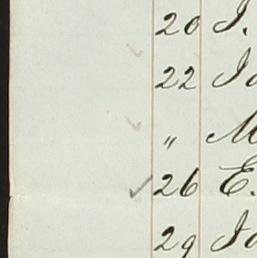 20 J.
22 Jo
" M
✓ 26 E.
29 Jo